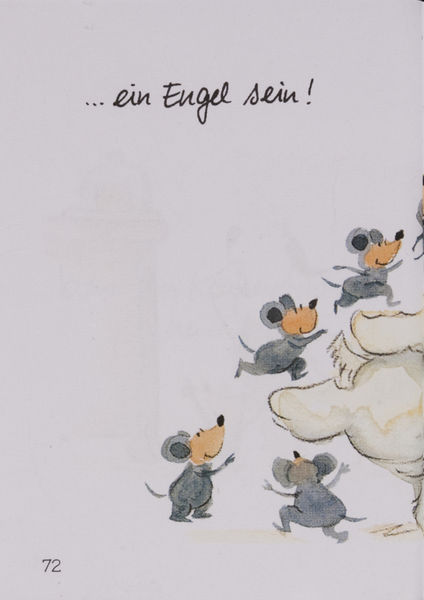 ... ein Engel sein!
72